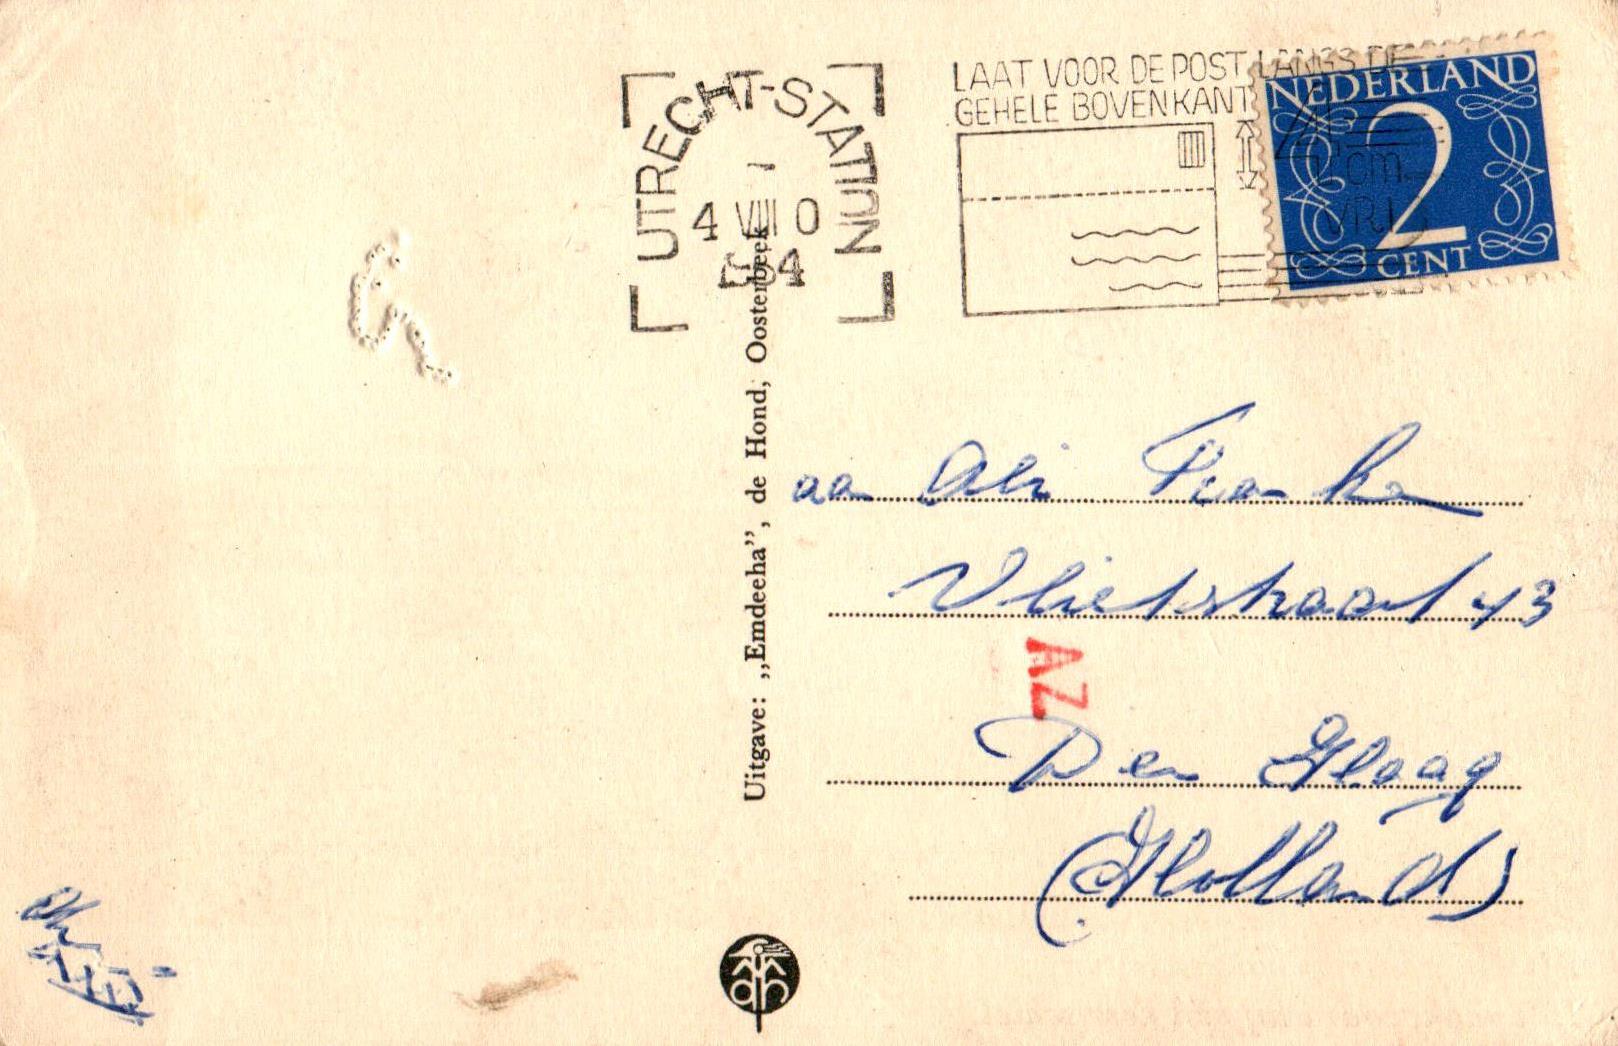 UTRECHT-STATION
4 VIII 0
LAAT VOOR DE POST LANGS DE
GEHELE BOVENKANT
4 cm
VRIJ
NEDERLAND
2
CENT
Uitgave: „Emdeeha”, de Hond, Oosterbeek
aan Ali Franke
Vlietstraat 43
AZ
Den Haag
(Holland)